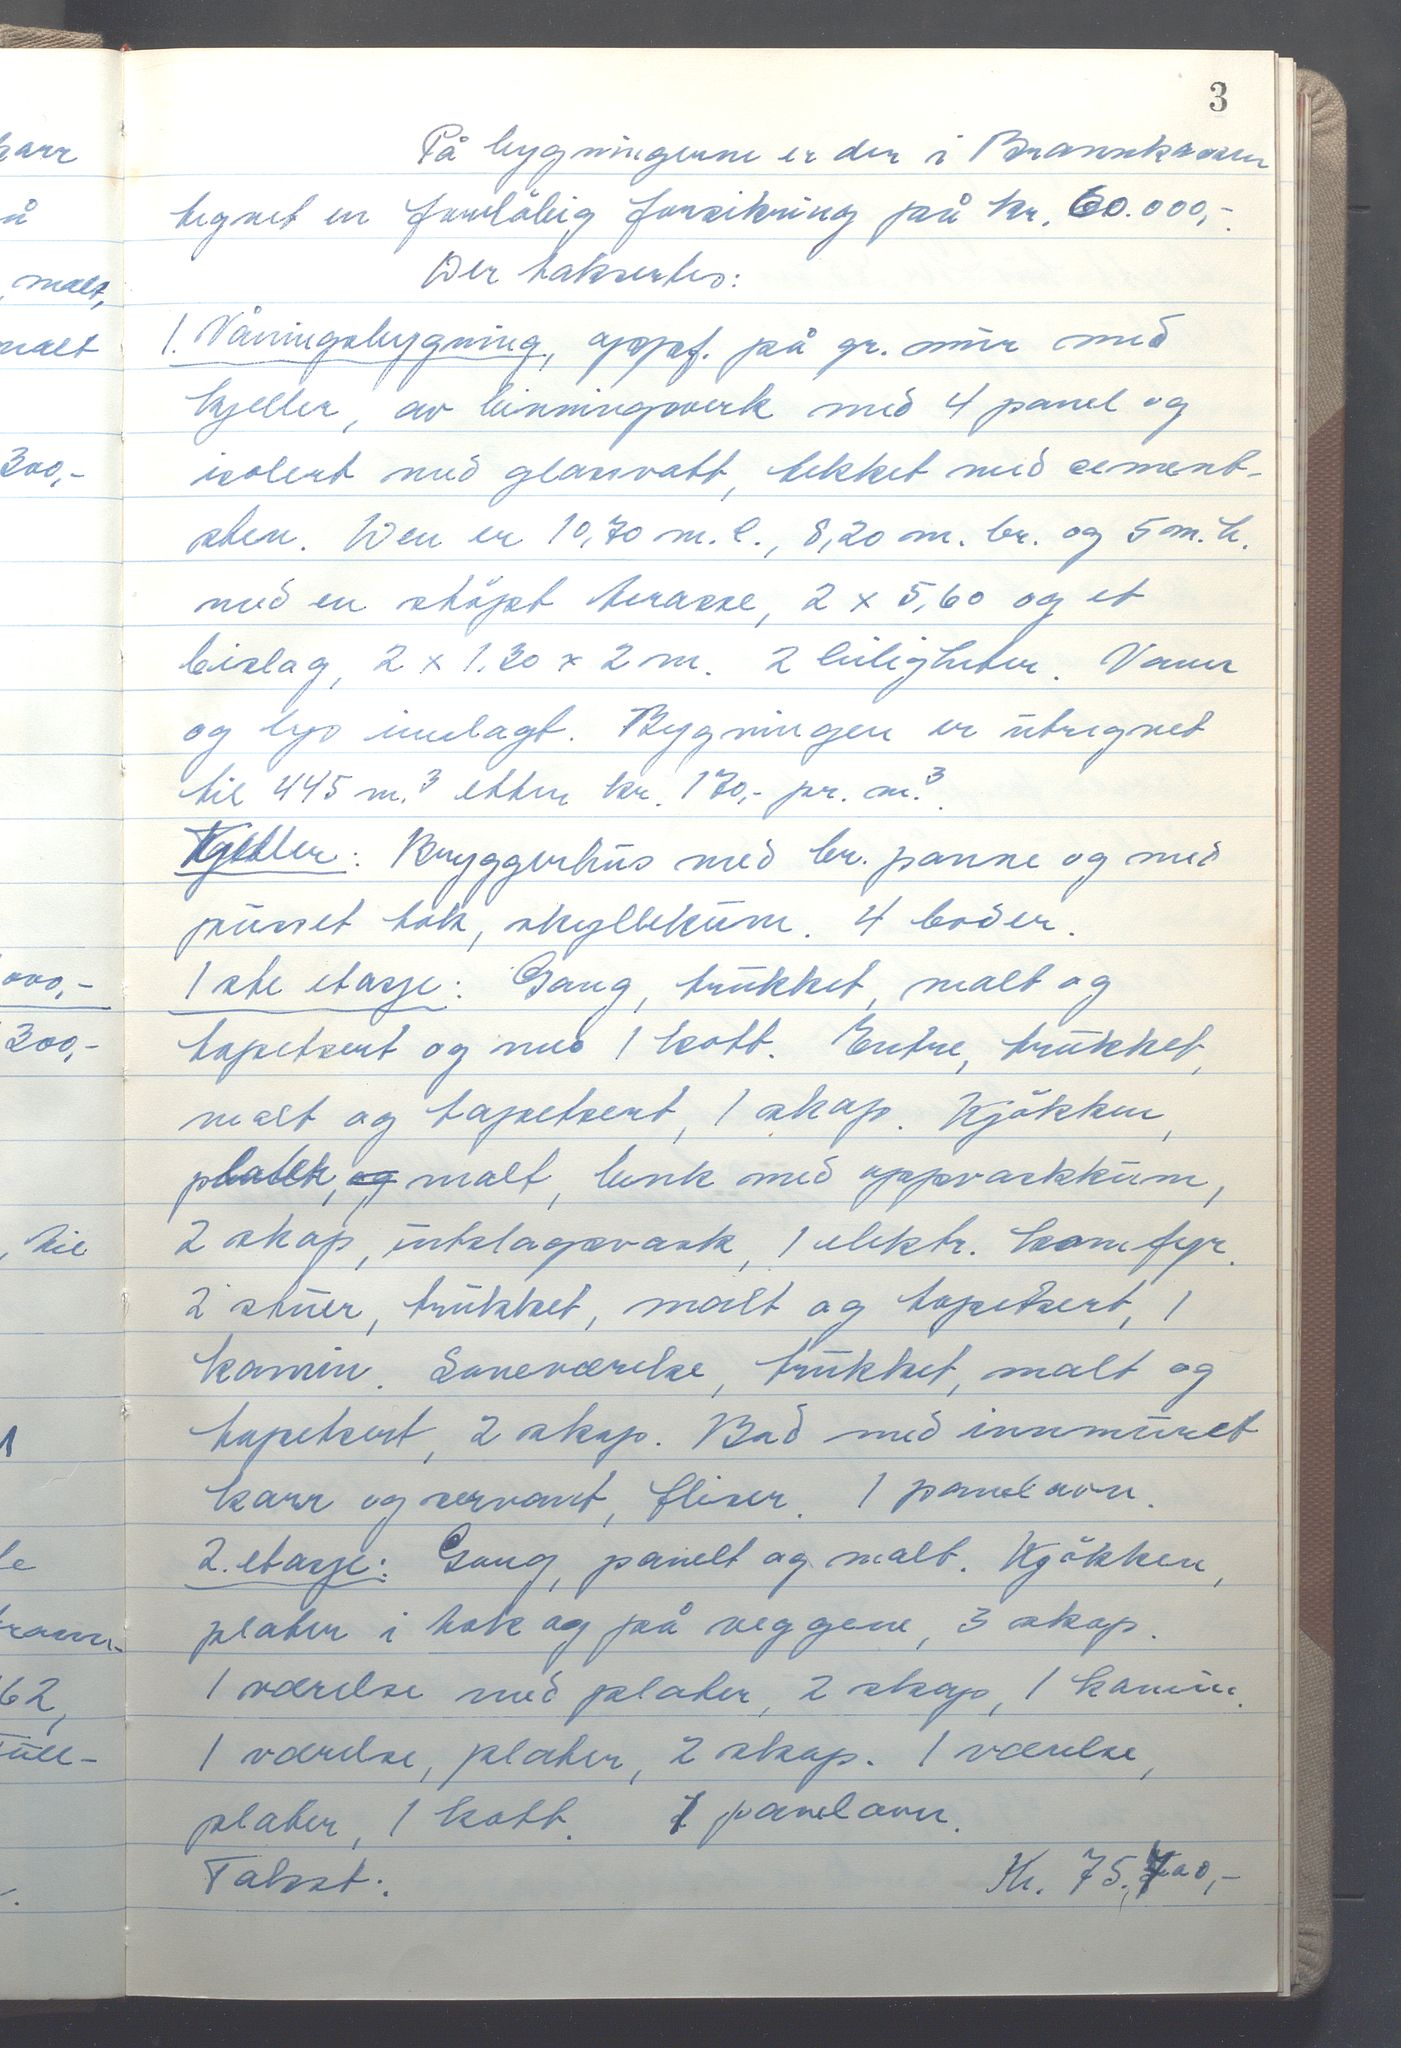 3
På bygningerne er der i Brannkassen
tegnet en foreløbig forsikring på kr. 60.000,-.
Der taksertes:
1. Våningsbygning, oppf. på gr. mur med
kjeller, av binningsverk med 4 panel og
isolert med glassvatt, tekket med sement-
sten. Den er 10,70 m. l., 8,20 m. br. og 5 m. h.
med en støpt terasse, 2 x 5,60 og et
bislag, 2 x 1.30 x 2 m. 2 leiligheter. Vann
og lys innlagt. Bygningen er utregnet
til 445 m.³ etter kr. 170,- pr. m.³.
Kjeller: Bryggerhus med br. panne og med
pusset tak, skyllekum. 4 boder.
1ste etasje: Gang, trukket, malt og
tapetsert og med 1 kott. Entre, trukket,
malt og tapetsert, 1 skap. Kjøkken,
malt, benk med oppvaskkum,
2 skap, utslagsvask, 1 elektr. komfyr.
2 stuer, trukket, malt og tapetsert, 1
kamin. Soveværelse, trukket, malt og
tapetsert, 2 skap. Bad med innmuret
karr og servant, fliser. 1 panelovn.
2. etasje: Gang, panelt og malt. Kjøkken,
plater i tak og på veggene, 3 skap.
1 værelse med plater, 2 skap, 1 kamin.
1 værelse, plater, 2 skap. 1 værelse,
plater, 1 kott. 1 panelovn.
Takst: Kr. 75.700,-
karr
å
, malt,
malt
300,-
000,-
300,-
, til
1
le
62,